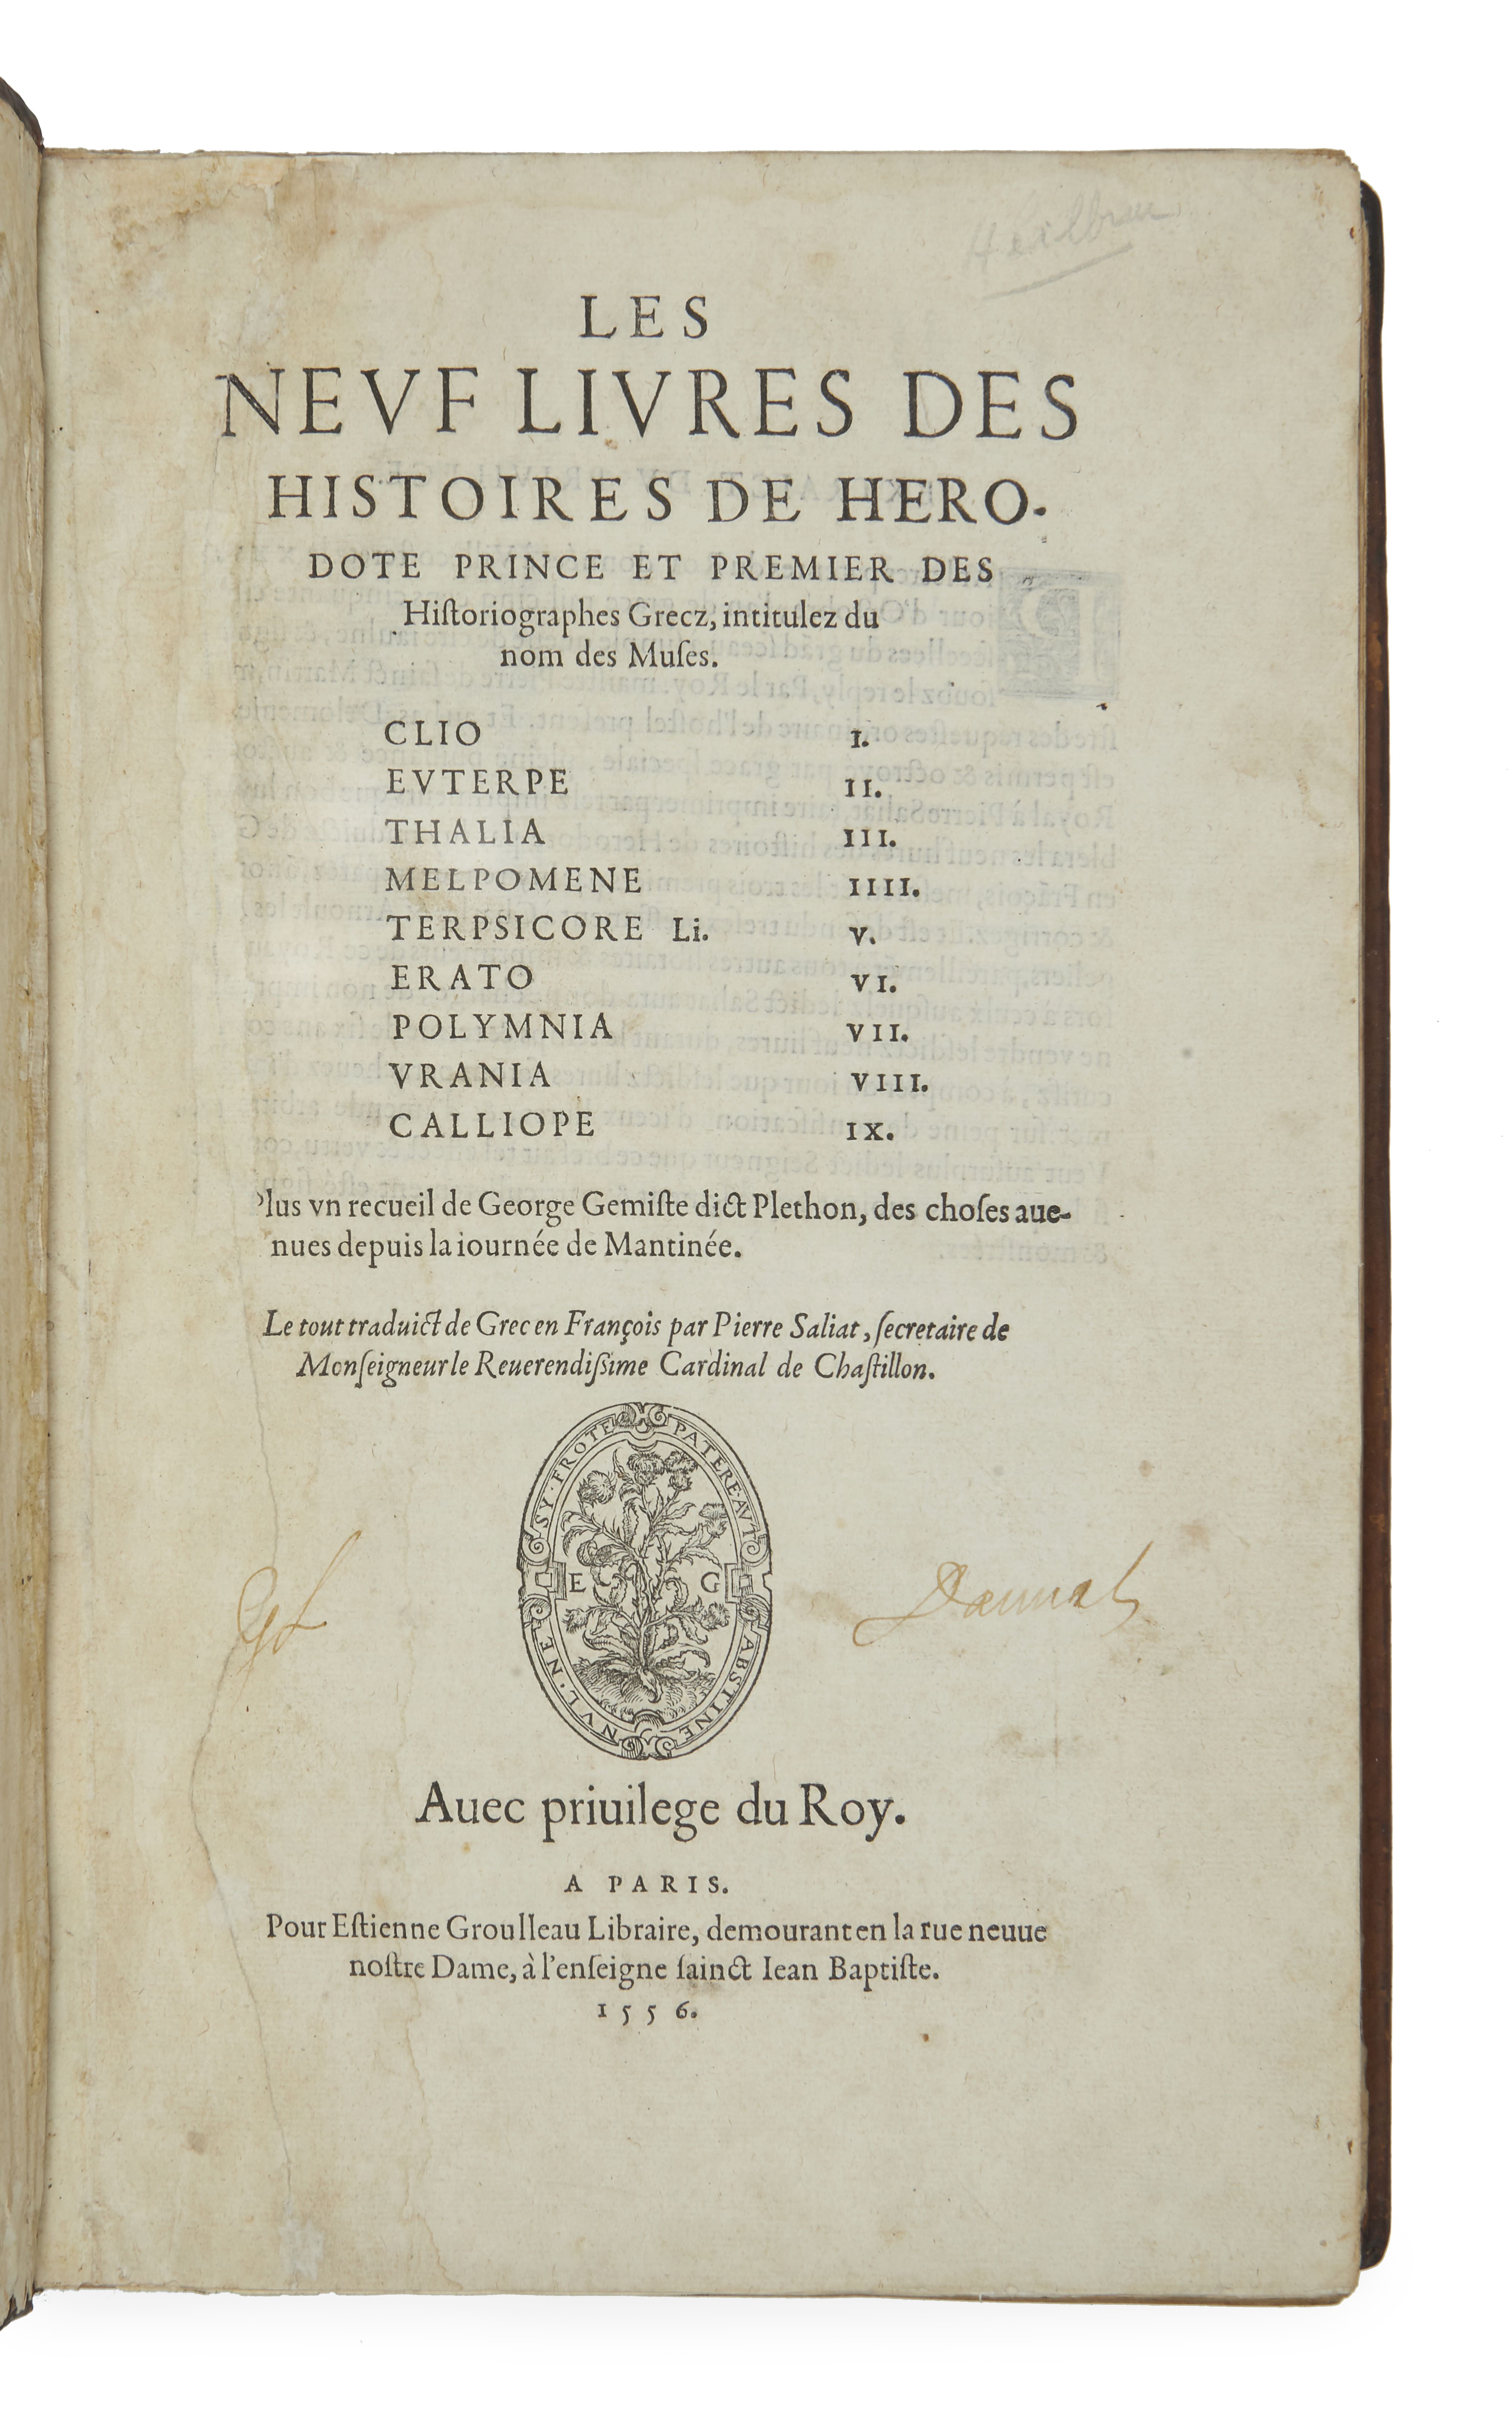 LES
NEVF LIVRES DES
HISTOIRES DE HERO-
DOTE PRINCE ET PREMIER DES
Hiſtoriographes Grecz, intitulez du
nom des Muſes.
CLIO I.
EVTERPE II.
THALIA III.
MELPOMENE IIII.
TERPSICORE Li. V.
ERATO VI.
POLYMNIA VII.
VRANIA VIII.
CALLIOPE IX.
Plus vn recueil de George Gemiſte dict Plethon, des choſes aue-
nues depuis la iournée de Mantinée.
Le tout traduict de Grec en François par Pierre Saliat, ſecretaire de
Monſeigneur le Reuerendiſsime Cardinal de Chaſtillon.
NVL · NE SY · FROTE
PATERE · AVT ABSTINE
E G
Auec priuilege du Roy.
A PARIS.
Pour Eſtienne Groulleau Libraire, demourant en la rue neuue
noſtre Dame, à l'enſeigne ſainct Iean Baptiſte.
1556.